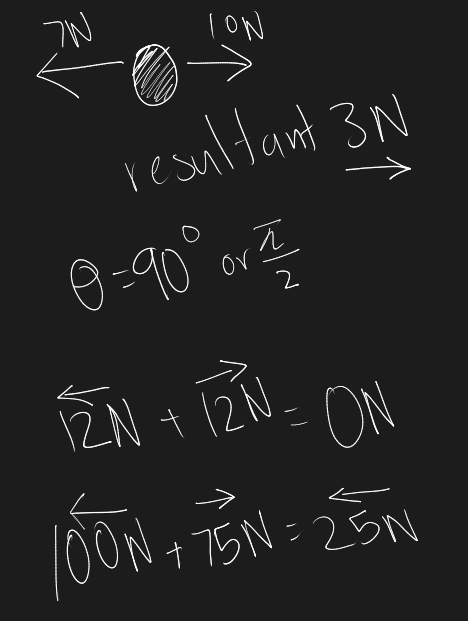 7N 10N
resultant 3N
θ=90° or π/2
12N + 12N = 0N
100N + 75N = 25N